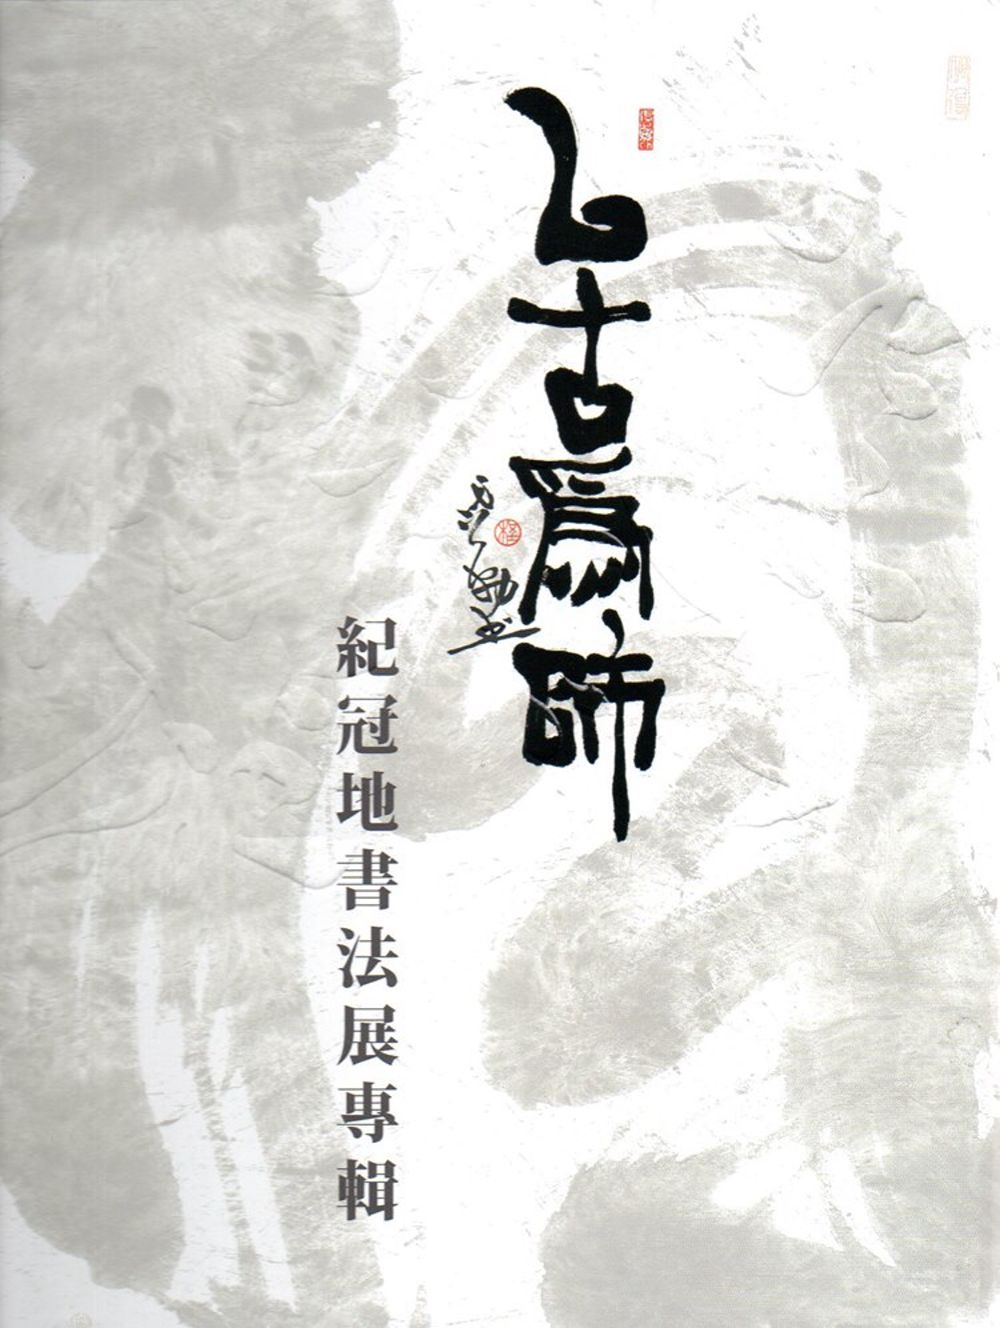 㠯古為師
紀冠地書法展專輯